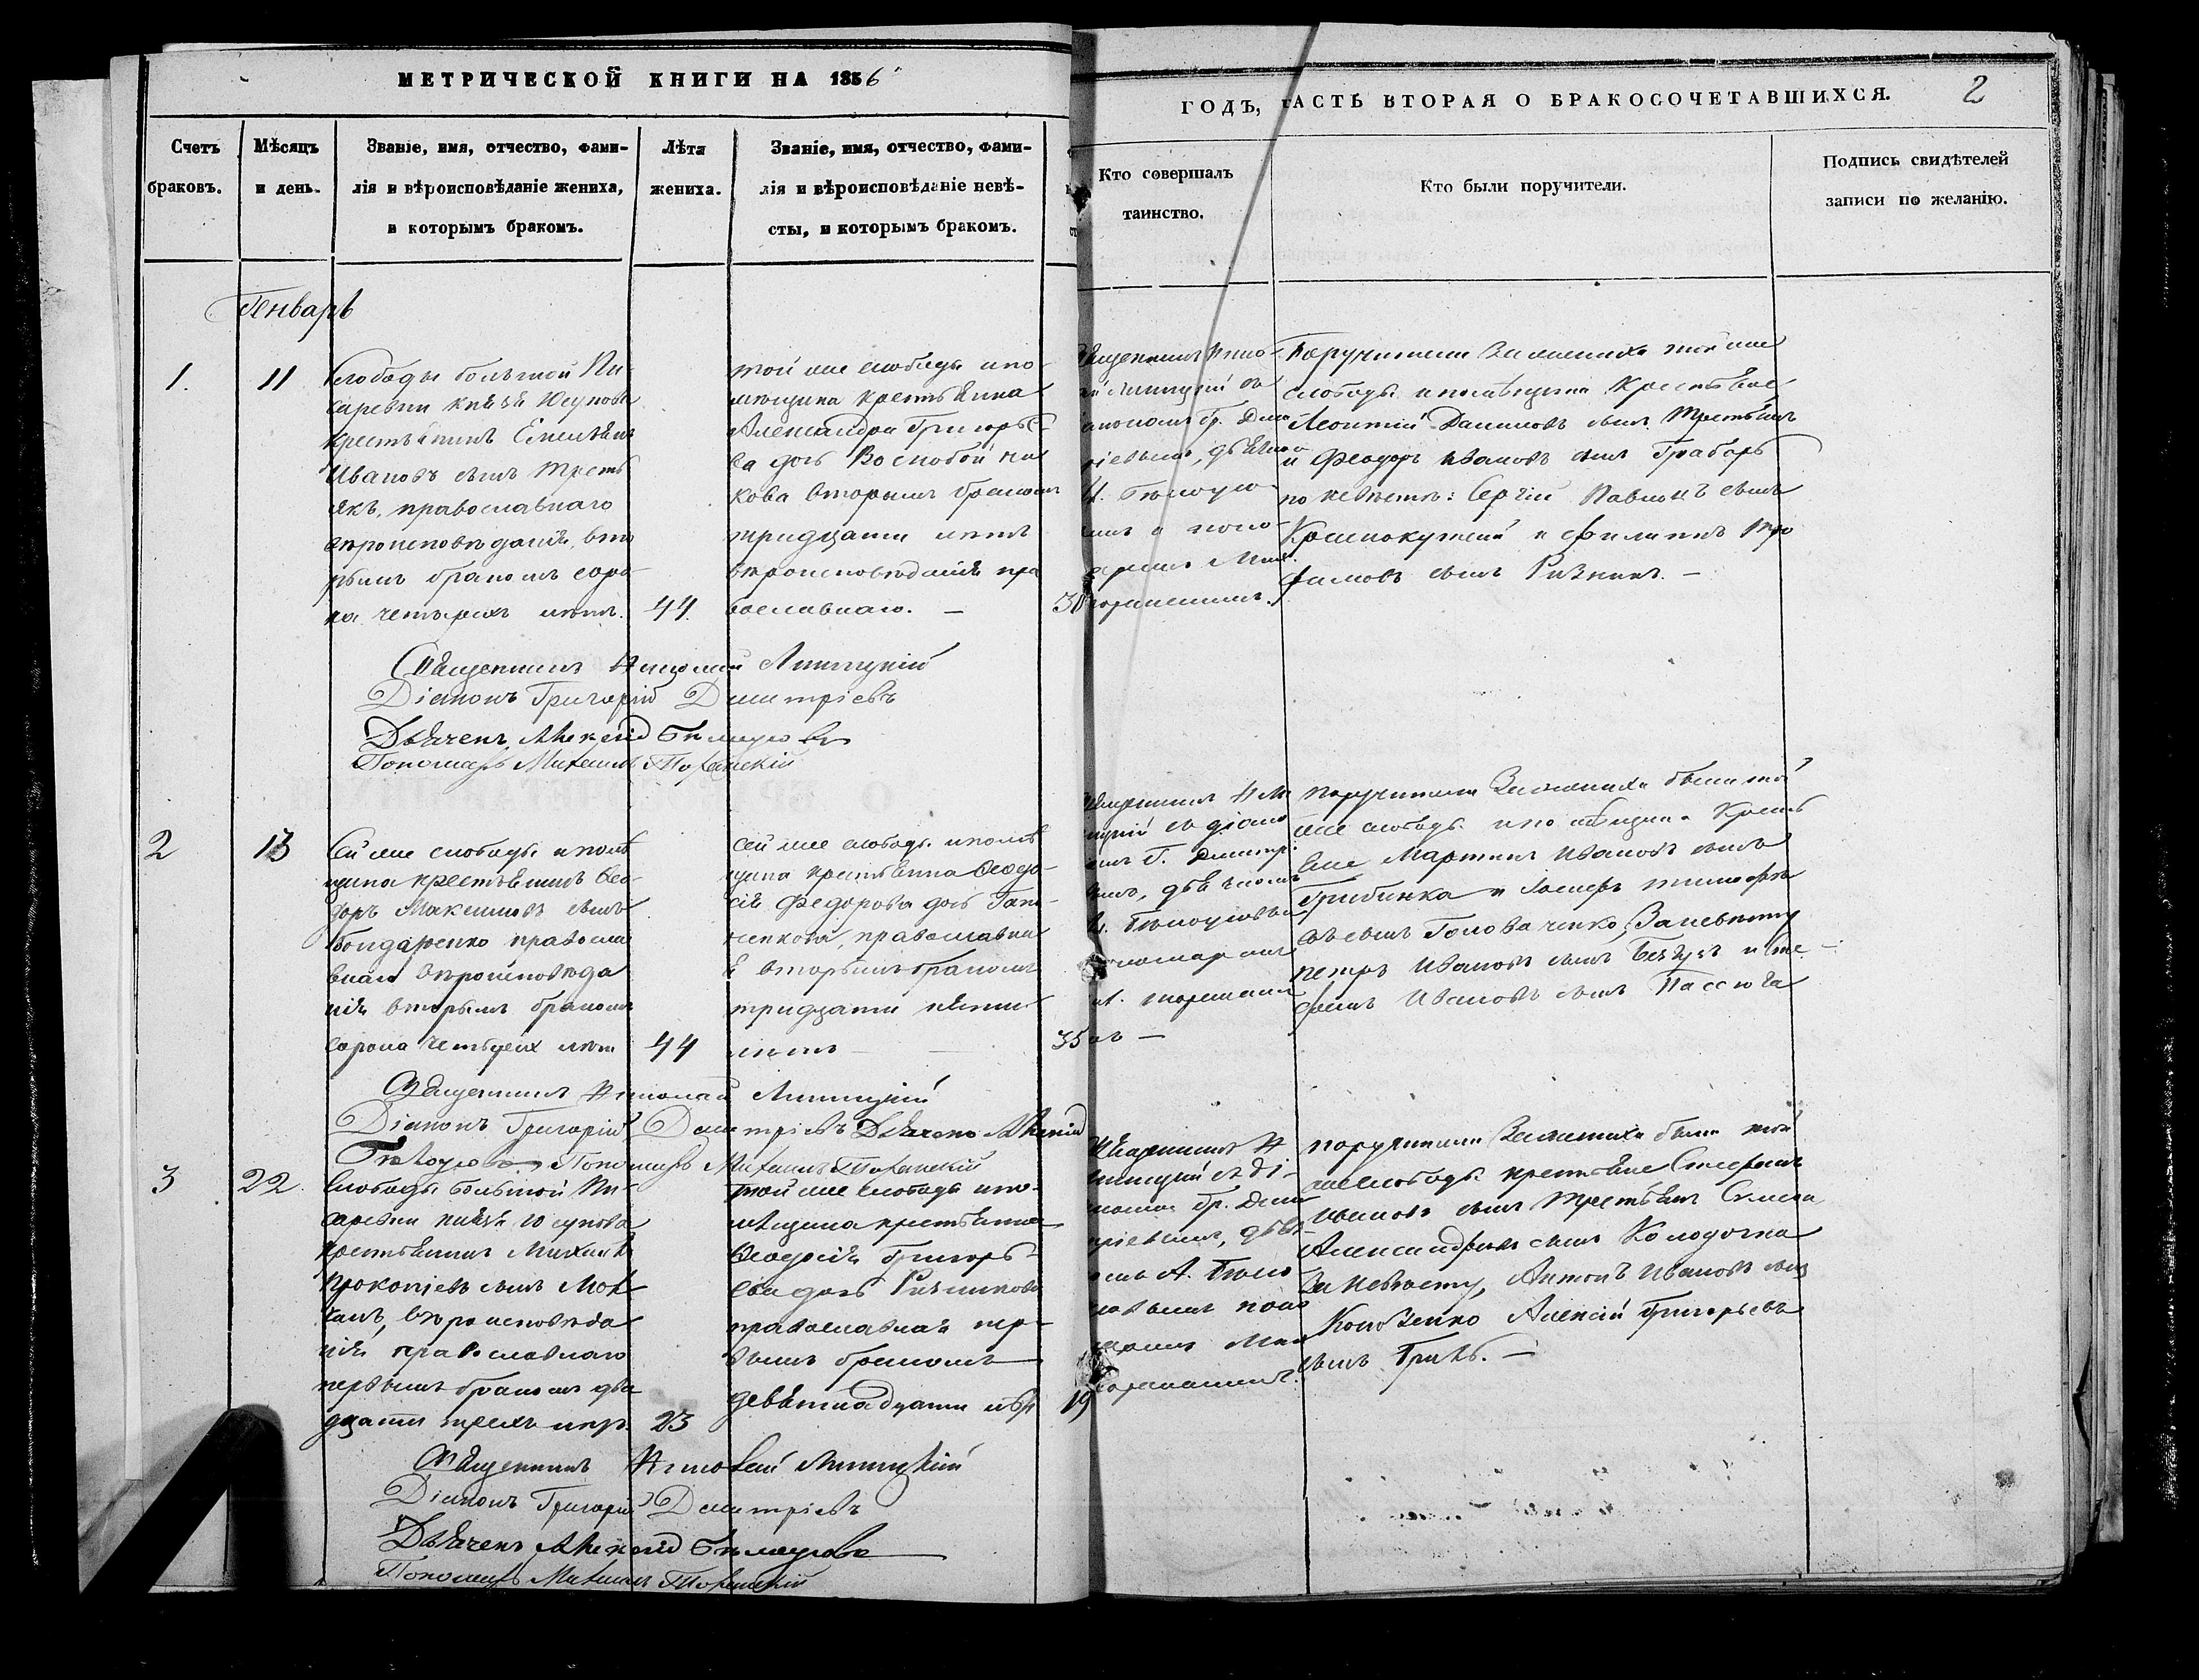 МЕТРИЧЕСКОЙ КНИГИ НА 1856
ГОДЪ, ЧАСТЬ ВТОРАЯ О БРАКОСОЧЕТАВШИХСЯ.
2
Счетъ
браковъ.
Мѣсяцъ
и день.
Званіе, имя, отчество, фами-
лія и вѣроисповѣданіе жениха,
и которымъ бракомъ.
Лѣта
жениха.
Званіе, имя, отчество, фами-
лія и вѣроисповѣданіе невѣ-
сты, и которымъ бракомъ.
Кто совершалъ
таинство.
Кто были поручители.
Подпись свидѣтелей
записи по желанію.
Генварь
1.
11
Слободы большой Пи-
саревки князя Юсупова
крестьянинъ Емельянъ
Ивановъ сынъ Треть
якъ, православнаго
вѣроисповѣданія, вто
рымъ бракомъ соро
ка четырехъ лѣтъ.
44.
той же слободы и по-
мѣщика крестьянка
Александра Григорье
ва дочь
кова вторымъ бракомъ
тридцати лѣтъ
вѣроисповѣданія пра
вославнаго. —
30
Священникъ Нико-
лай Линицкій съ
діакономъ Гр. Дми
тріевымъ,
А. Бѣлоусо
вымъ и поно-
маремъ Мих.
Поручители по женихѣ той же
слободы и помѣщика крестьяне
Леонтій Даниловъ сынъ Третьякъ
и Феодоръ Ивановъ сынъ Граборь
по невѣстѣ: Сергій Павловъ сынъ
Краснокутскій и Филиппъ Тро
фимовъ сынъ Рѣзникъ. —
Священникъ Николай Линицкій
Діаконъ Григорій Дмитріевъ
Дьячекъ Алексій Бѣлоусовъ
Пономарь Михаилъ
2
13
Сей же слободы и помѣ
щика крестьянинъ Ѳео-
доръ Максимовъ сынъ
Бондаренко правосла
внаго вѣроисповѣда
нія вторымъ бракомъ
сорока четырехъ лѣтъ
44
сей же слободы и помѣ
щика крестьянка Ѳеодо-
сія Федорова дочь Гапо
ненкова, православна
я вторымъ бракомъ
тридцати пяти
лѣтъ —
35
Поручители по женихѣ были той
же слободы и помѣщика кресть
яне Мартинъ Ивановъ сынъ
Грибинка и Іосифъ Тимофѣ
евъ сынъ Головаченко, за невѣсту
Петръ Ивановъ сынъ и Сте
фанъ Ивановъ сынъ Пассюга
Священникъ Николай Линицкій
Діаконъ Григорій Дмитріевъ Дьячекъ Алексій
Бѣлоусовъ Пономарь Михаилъ
3
22
Слободы большой Пи-
саревки князя Юсупова
крестьянинъ Михаилъ
Прокопіевъ сынъ Мов
чанъ, вѣроисповѣда
нія православнаго
первымъ бракомъ два
дцати трехъ лѣтъ.
23
той же слободы и по-
мѣщика крестьянка
Ѳеодосія Григорь-
ева дочь Рѣзникова
православная пер-
вымъ бракомъ
девятнадцати лѣтъ
19
поручители по женихѣ были той
же слободы крестьяне Стефанъ
Ивановъ сынъ Третьякъ
Александровъ сынъ Колодочка
за невѣсту, Антонъ Ивановъ сынъ
Алексій Григорьевъ
сынъ —
Священникъ Николай Линицкій
Діаконъ Григорій Дмитріевъ
Дьячекъ Алексій Бѣлоусовъ
Пономарь Михаилъ